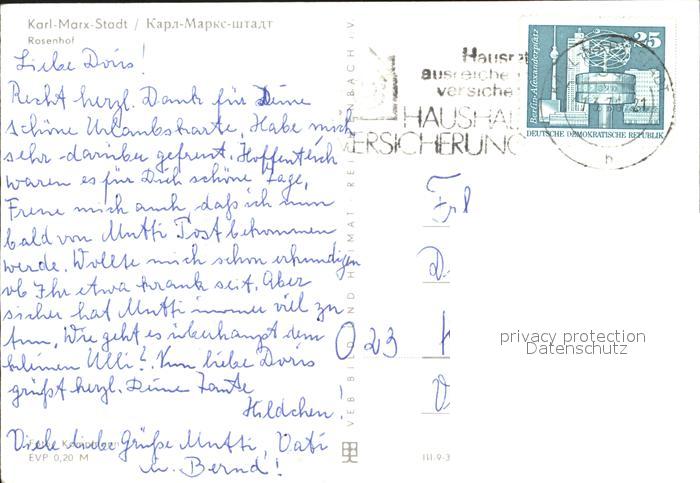 Karl-Marx-Stadt / Карл-Маркс-штадт
Rosenhof
Liebe Doris!
Recht herzl. Dank für Deine
schöne Urlaubskarte. Habe mich
sehr darüber gefreut. Hoffentlich
waren es für Dich schöne Tage,
Freue mich auch, daß ich nun
bald von Mutti Post bekommen
werde. Wollte mich schon erkundigen
ob Ihr etwa krank seit. Aber
sicher hat Mutti immer viel zu
tun. Wie geht es überhaupt dem
kleinen Ulli? Nun liebe Doris
grüßt herzl. Deine Tante
Hildchen!
Viele liebe Grüße Mutti, Vati
u. Bernd!
EVP 0,20 M
VEB BILD UND HEIMAT REICHENBACH i. V.
III-9-3
Hausrat
ausreiche
versiche
HAUSHAL
VERSICHERUNG
Berlin-Alexanderplatz
25
DEUTSCHE DEMOKRATISCHE REPUBLIK
h
Frl
D.
023
privacy protection
Datenschutz